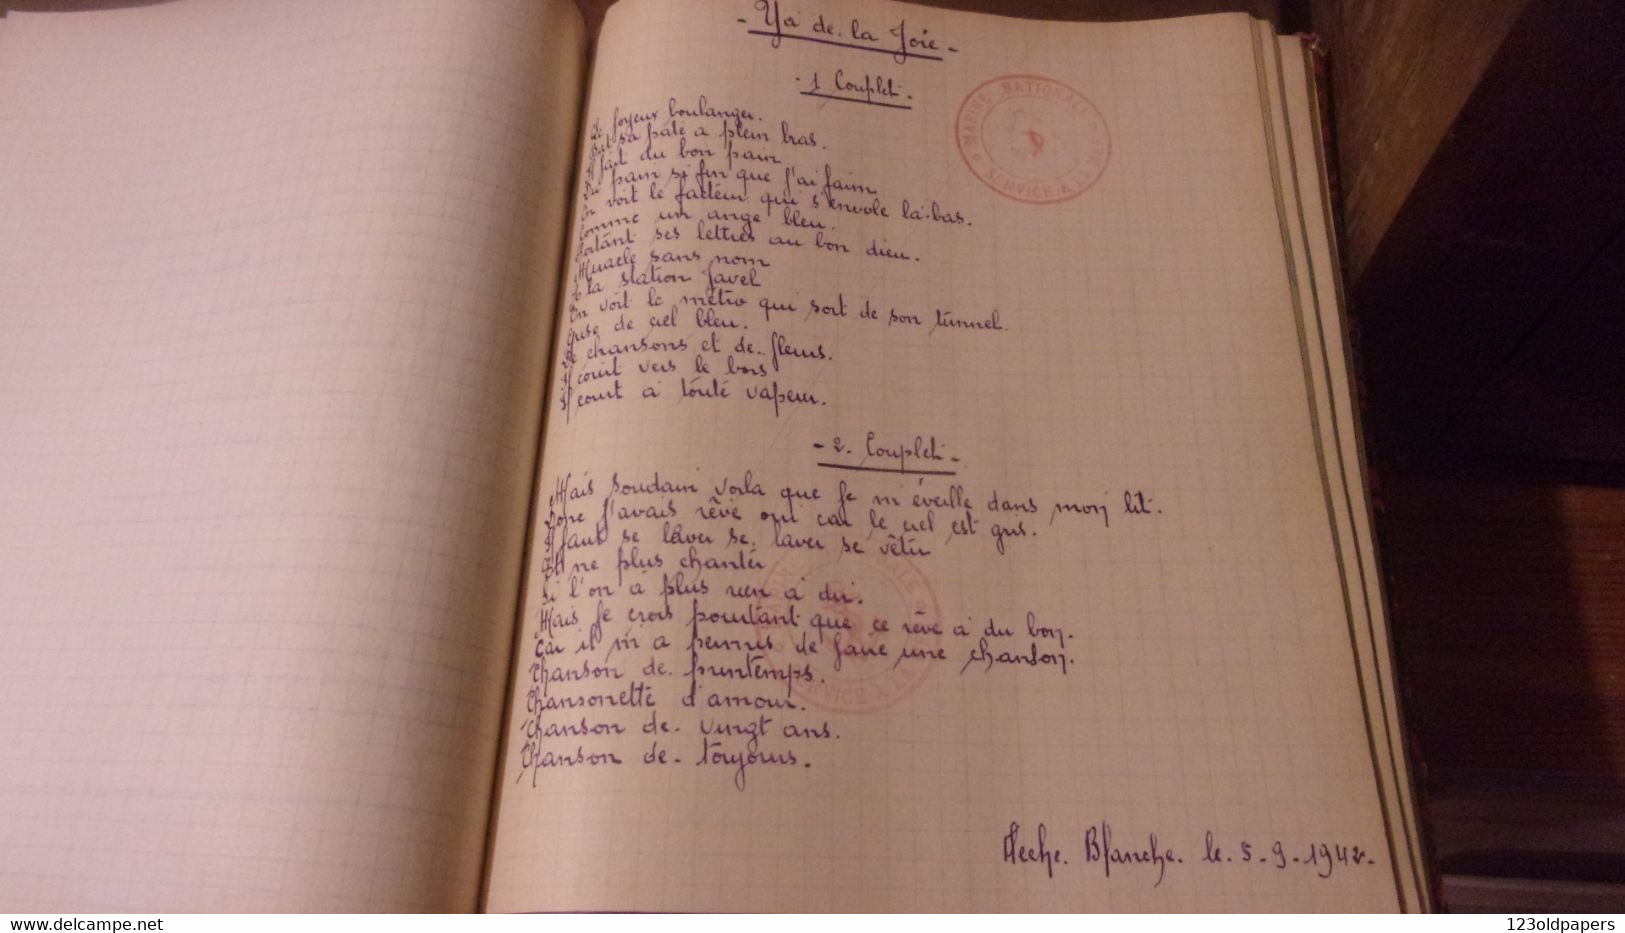 - Ya de. la Joie -
- 1 Couplet -
Le joyeux boulanger.
Bat sa pate a plein bras.
Il fait du bon pain
Du pain si fin que j'ai faim
On voit le facteur qui s'envole la-bas.
Comme un ange bleu.
Portant ses lettres au bon dieu.
Miracle sans nom
A la station Javel
On voit le métro qui sort de son tunnel.
Grise de ciel bleu.
De chansons et de. fleurs.
Il court vers le bois
Il court a toute vapeur.
- 2. Couplet -
Mais soudain voila que je m'éveille dans mon lit.
Donc j'avais rêvé oui car le ciel est gris.
Il faut se laver se. laver se vêtir
Et ne plus chanter
Si l'on a plus rien a dir.
Mais je crois pourtant que ce rêve a du bon.
Car il m'a permis de faire une chanson.
Chanson de. printemps.
Chansonette d'amour.
Chanson de. vingt ans.
Chanson de. toujours.
Blanche. le 5-9-1942-
MARINE NATIONALE
SERVICE A LA MER
SERVICE A LA
123oldpapers